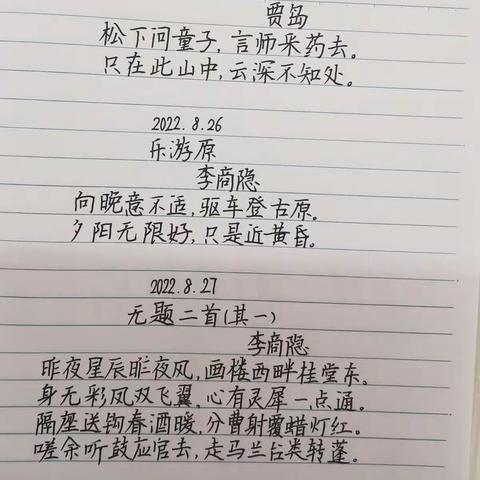 贾岛
松下问童子,言师采药去。
只在此山中,云深不知处。
2022.8.26
乐游原
李商隐
向晚意不适,驱车登古原。
夕阳无限好,只是近黄昏。
2022.8.27
无题二首(其一)
李商隐
昨夜星辰昨夜风,画楼西畔桂堂东。
身无彩凤双飞翼,心有灵犀一点通。
隔座送钩春酒暖,分曹射覆蜡灯红。
嗟余听鼓应官去,走马兰台类转蓬。